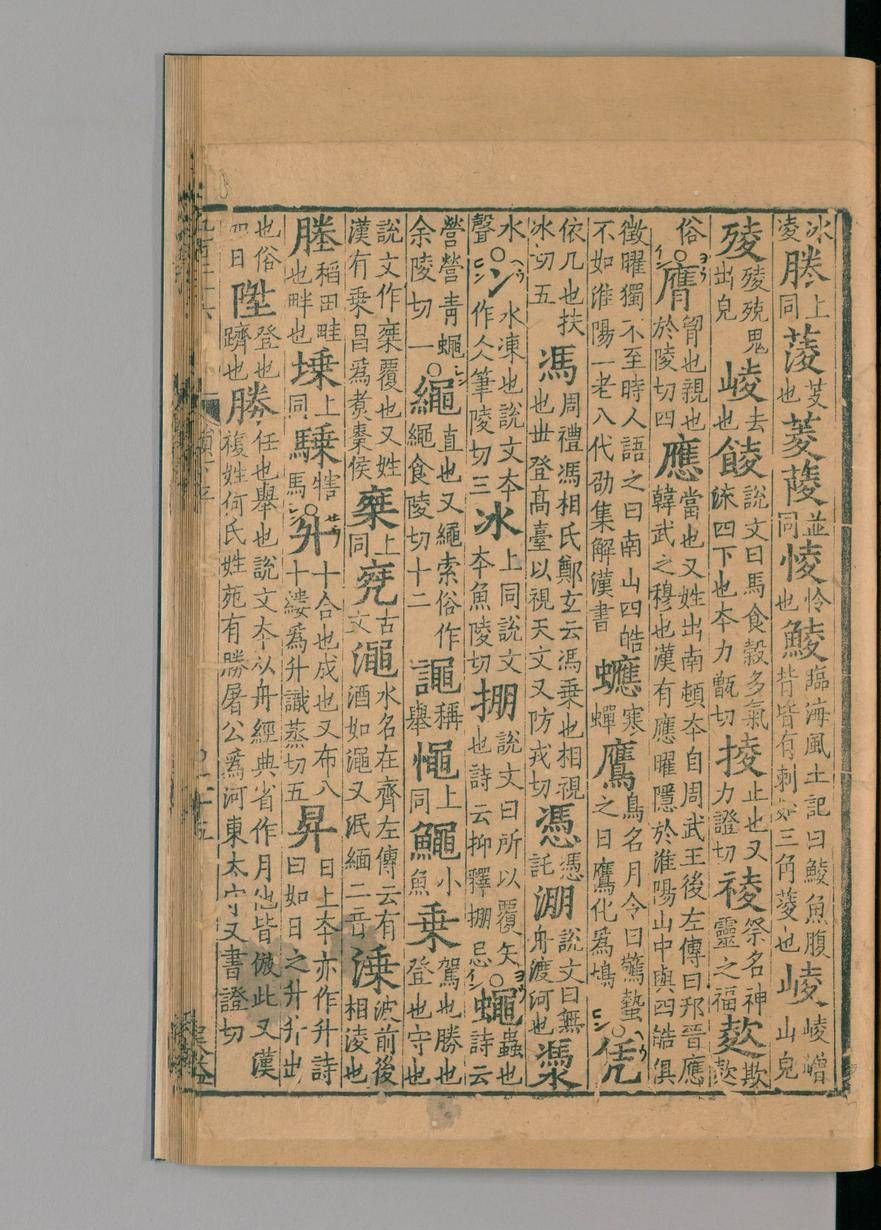 冰凌𠗲上同䔖芰也菱蔆並同㥄怜也鯪臨海風土記曰鯪魚腹背皆有刺如三角菱也崚崚嶒山皃
㱥㱥殑鬼出皃崚去也餕說文曰馬食穀多氣流四下也本力甑切掕止也又力證切祾祭名神靈之福㱥欺㱥
俗○膺匈也親也於陵切四應當也又姓出南頓本自周武王後左傳曰邘晉應韓武之穆也漢有應曜隱於淮陽山中與四皓俱
徵曜獨不至時人語之曰南山四皓不如淮陽一老八代劭集解漢書蠯寒蟬鷹鳥名月令曰驚蟄之日鷹化爲鳩○凭
依几也扶冰切五馮周禮馮相氏鄭玄云馮乗也相視也世登髙臺以視天文又防戎切憑憑託淜說文曰無舟渡河也凴
水聲○冫水凍也說文本作仌筆陵切三冰上同說文本魚陵切掤說文曰所以覆矢也詩云抑釋掤忌○蠅蟲也詩云
營營青蠅余陵切一○繩直也又繩索俗作繩食陵切十二譝稱舉憴上同鱦小魚乗駕也勝也登也守也
說文作椉覆也又姓漢有乗昌爲煑棗侯椉上同𠅞古文澠水名在齊左傳云有酒如澠又泯緬二音溗波前後相淩也
塍稻田畦也畔也堘上同騬犗馬○升十合也成也又布八十縷爲升識蒸切五昇日上本亦作升詩曰如日之升升出
也俗加日陞登也躋也勝任也舉也說文本从舟經典省作月他皆倣此又漢複姓何氏姓苑有勝屠公爲河東太守又書證切